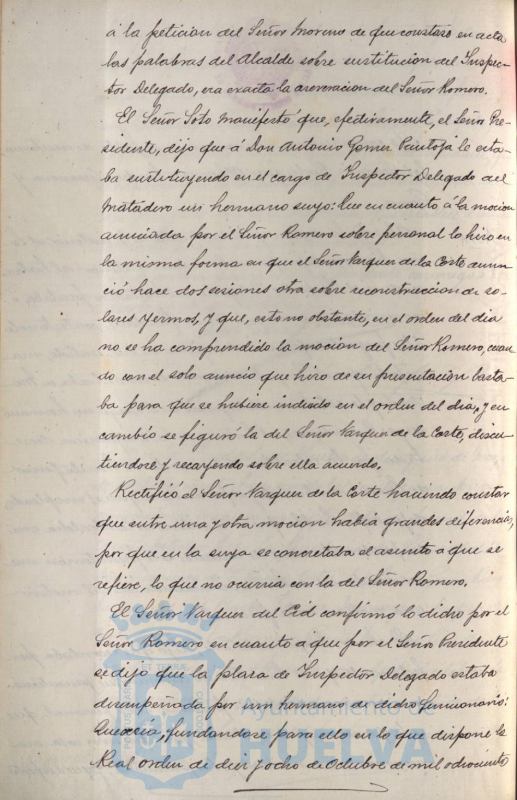 á la peticion del Señor Moreno de que constase en acta
las palabras del Alcalde sobre sustitucion del Inspec-
tor Delegado, era exacta la aseveracion del Señor Romero.
El Señor Soto manifestó que, efectivamente, el Señor Pre-
sidente, dijo que á Don Antonio Gomez Pintoja le esta-
ba sustituyendo en el cargo de Inspector Delegado del
Matadero un hermano suyo: Que en cuanto á la mocion
anunciada por el Señor Romero sobre personal lo hizo en
la misma forma en que el Señor Vazquez de la Corte anun-
ció hace dos sesiones otra sobre reconstruccion de so-
lares yermos, y que, esto no obstante, en el orden del dia
no se ha comprendido la mocion del Señor Romero, cuan-
do con el solo anuncio que hizo de su presentacion basta-
ba para que se hubiese incluido en el orden del dia, y en
cambio se figuró la del Señor Vazquez de la Corte, discu-
tiendose y recayendo sobre ella acuerdo.
Rectificó el Señor Vazquez de la Corte haciendo constar
que entre una y otra mocion habia grandes diferencias,
por que en la suya se concretaba el asunto á que se
refiere, lo que no ocurria con la del Señor Romero.
El Señor Vazquez del Cid confirmó lo dicho por el
Señor Romero en cuanto á que por el Señor Presidente
se dijo que la plaza de Inspector Delegado estaba
desempeñada por un hermano de dicho funcionario:
fundandose para ello en lo que dispone la
Real orden de diez y ocho de Octubre de mil ochociento
Ayuntamiento de
HUELVA